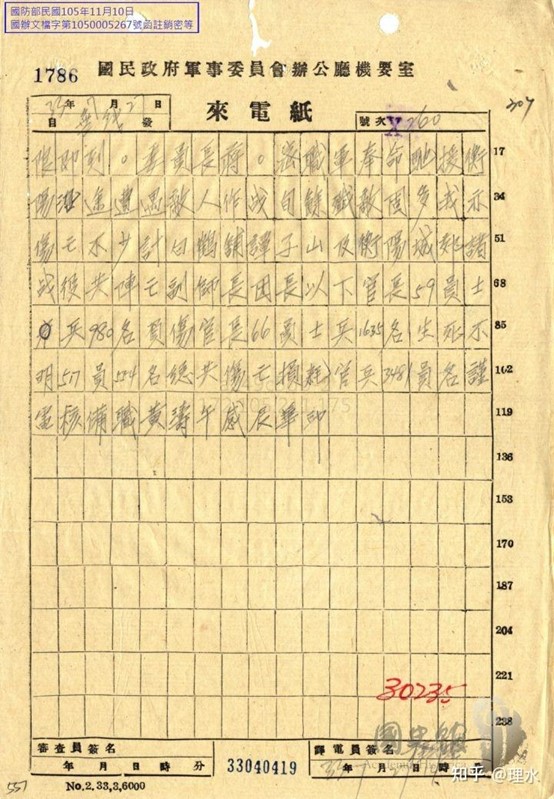 國防部民國105年11月10日
國辦文檔字第1050005267號函註銷密等
1786 國民政府軍事委員會辦公廳機要室
33年7月27日
自 發
來電紙
號次 X 260
限即刻。委員長蔣。密職軍奉命馳援衡 17
陽 途遭遇敵人作战旬餘殲敵固多我亦 34
傷亡不少計白鶴鋪譚子山及衡陽城郊諸 51
战役共陣亡副師長团長以下官長59員士 68
兵980名負傷官長66員士兵1635名生死不 85
明517員 名總共傷亡損耗官兵3481員名謹 102
電核備職黃濤午感辰華印 119
136
153
170
187
204
221
238
30235
審查員簽名
年 月 日 時 分
33040419
譯電員簽名
年 月 日 時
557 No.2.33,3,6000
國史館
知乎 @理水